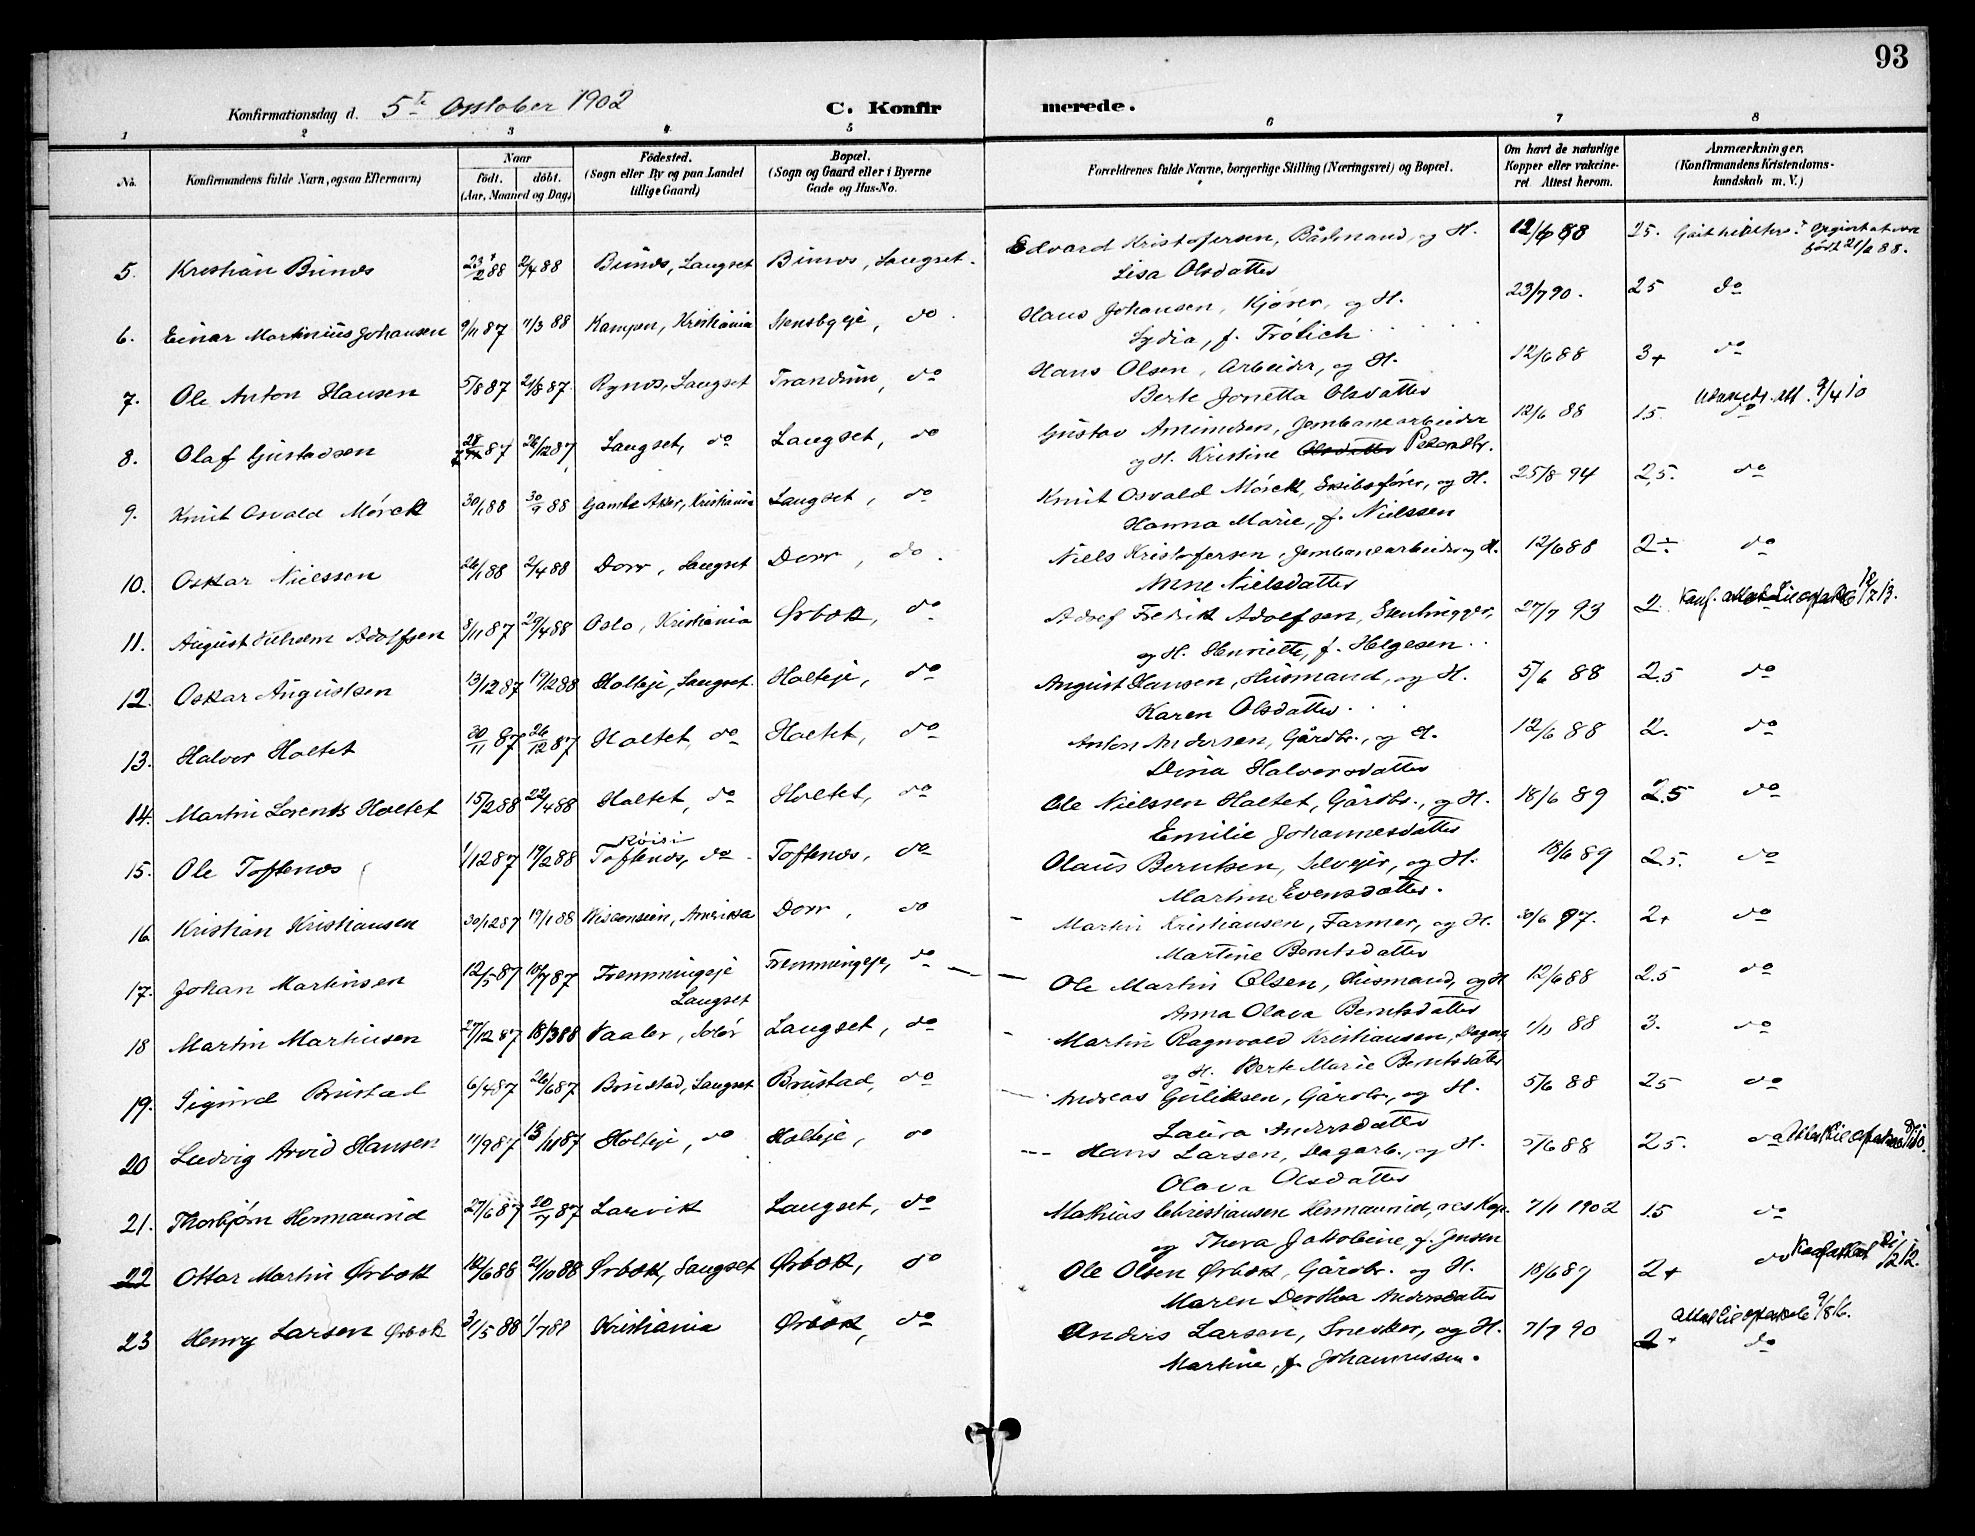 93
Konfirmationsdag d. 5te Oktober 1902 C. Konfirmerede.
1 2 3 4 5 6 7 8
No. Konfirmandens fulde Navn, ogsaa Efternavn) Naar født. døbt. (Aar, Maaned og Dag) Fødested. (Sogn eller By og paa Landet tillige Gaard) Bopæl. (Sogn og Gaard eller i Byerne Gade og Hus-No. Forældrenes fulde Navne, borgerlige Stilling (Næringsvei) og Bopæl. Om havt de naturlige Kopper eller vakcineret Attest herom. Anmærkninger. (Konfirmandens Kristendomskundskab m. V.)
5. Kristian Bundes 2/4 88 Langset Langset. Edvard Kristofersen, og H. 12/6 88 25. født 21/2 88.
Lisa Olsdatter
6. Einar Martinius Johansen 9/11 87 11/3 88 Kampen, Kristiania Stensbyeje, do Hans Johansen, Kjører, og H. 23/7 90. 25 do
Lydia, f. Frølich
7. Ole Anton Hansen 5/8 87 21/8 87. Langset Trandum, do Hans Olsen, Arbeider, og H. 12/6 88 3+ do
Berte Jonetta Olsdatter
8. Olaf Gustavsen 26/12 87 Langset, do Langset, do Gustav Amundsen, Jernbanearbeider 12/6 88 15 do
og H. Kristine Olsdatter Petersdtr.
9. Knut Osvald Mörck 30/1 88 30/9 88 Gamle Aker, Kristiania Langset, do Knut Osvald Mörck, Skibsfører, og H. 25/8 94 2,5. do
Hanna Marie, f. Nielssen
10. Oskar Nielssen 26/1 88 2/4 88 Dorr, Langset Dorr, do Niels Kristofersen, Jernbanearbeider og H. 12/6 88 2÷ do
Anne Nielsdatter
11. August Vilhelm Adolfsen 8/11 87 29/4 88 Oslo, Kristiania Ørbæk, do Adolf Fredrik Adolfsen, Stenhugger, 27/7 93 2.
og H. Henriette, f. Helgesen
12. Oskar Augustsen 13/12 87 19/2 88 Holteje, Langset. Holteje, do August Hansen, Husmand, og H. 5/6 88 2.5 do
Karen Olsdatter
13. Halvor Holtet 30/11 87 26/12 87 Holtet, do Holtet, do Anton Andersen, Gårdbr., og H. 12/6 88 2. do
Dina Halvorsdatter
14. Martin Lorents Holtet 15/2 88 22/4 88 Holtet, do Holtet, do Ole Nielssen Holtet, Gårdbr., og H. 18/6 89 2.5 do
Emilie Johannesdatter
15. Ole Toftenes 1/12 87 19/2 88 Toftenes, do Toftenes, do Olaus Berntsen, Selvejer, og H. 18/6 89 25. do
Martine Evensdatter.
16. Kristian Kristiansen 30/12 87 19/1 88 Wisconsin, Amerika Dorr, do Martin Kristiansen, Farmer, og H. 30/6 97. 2+ do
Martine Berntsdatter
17. Johan Martinsen 12/5 87 10/7 87 Fremmingeje Langset Fremmingeje, do Ole Martin Olsen, Husmand, og H 12/6 88 2.5 do
Anna Olava Berntsdatter
18 Martin Martinsen 27/12 87 18/3 88 Vaaler, Solør Langset, do Martin Ragnvald Kristiansen, 88 3. do
og H. Berte Marie Berntsdatter
19. Sigurd Brustad 6/4 87 26/6 87 Brustad, Langset Brustad, do Andreas Guliksen, Gårdbr., og H. 5/6 88 25 do
Laura Andersdatter
20 Ludvig Arvid Hansen 11/9 87 13/11 87 Holteje, do Holteje, do Hans Larsen, Dagarb., og H. 5/6 88 25. do
Olava Olsdatter
21. Thorbjørn Hermanrud 27/6 87 Larvik Langset, do Mathias Christiansen Hermanrud, 7/1 1902 1.5 do
og Thora Jakobine, f. Jensen
22 Ottar Martin Ørbæk 2/10 88 Ørbæk, Langset Ørbæk, do Ole Olsen Ørbæk, Gårdbr. og H. 18/6 89 2+ do
Maren Dorthea Andersdatter
23 Henry Larsen Ørbæk 3/5 88 1/7 88 Kristiania Ørbæk, do Anders Larsen, Snedker, og H. 7/7 90 2+ do
Martine, f. Johannessen.